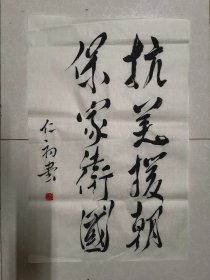 抗美援朝
保家衛國
仁初书